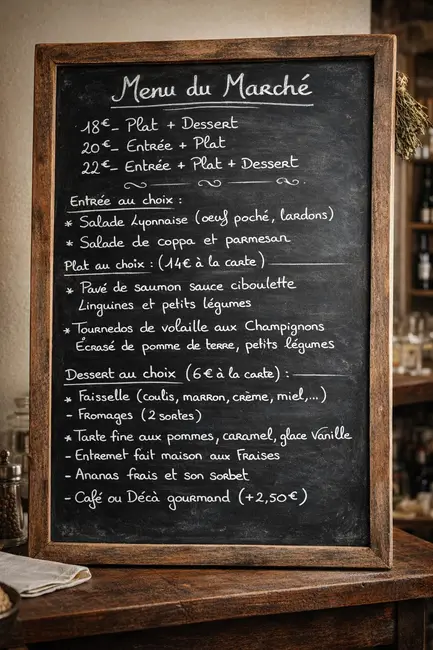 Menu du Marché
18€- Plat + Dessert
20€- Entrée + Plat
22€- Entrée + Plat + Dessert
Entrée au choix :
* Salade Lyonnaise (oeuf poché, lardons)
* Salade de coppa et parmesan
Plat au choix : (14€ à la carte)
* Pavé de saumon sauce ciboulette
Linguines et petits légumes
* Tournedos de volaille aux Champignons
Écrasé de pomme de terre, petits légumes
Dessert au choix (6€ à la carte) :
* Faisselle (coulis, marron, crème, miel,...)
- Fromages (2 sortes)
* Tarte fine aux pommes, caramel, glace Vanille
- Entremet fait maison aux Fraises
- Ananas frais et son sorbet
- Café ou Décà gourmand (+2,50€)